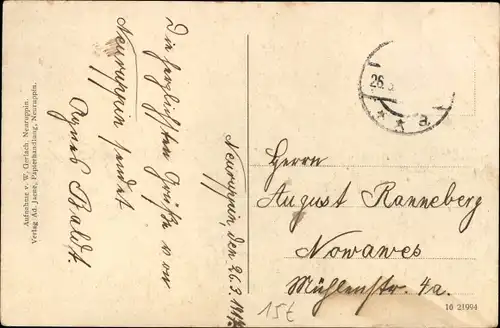 Neuruppin, den 26.3.
Die herzlichsten Grüße von
Neuruppin sendet
Agnes Baldt.
Aufnahme v. W. Gerlach, Neuruppin.
Verlag Ad. Jaene, Papierhandlung, Neuruppin.
26.
* * a.
Herrn
August Ranneberg
Nowawes
Mühlenstr. 4a.
15€
16 21994